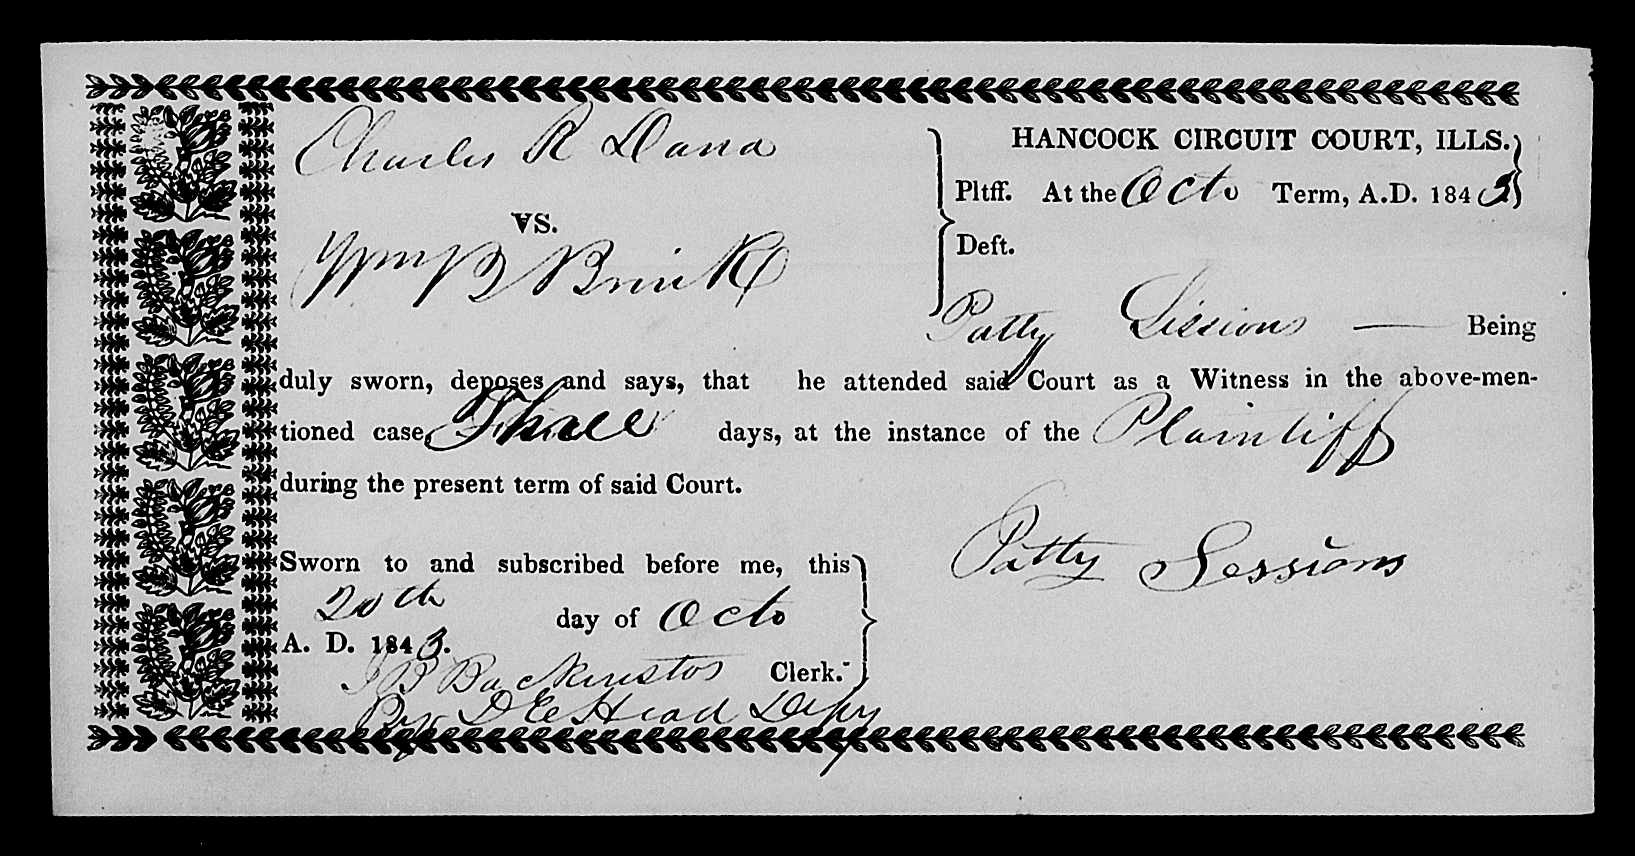 HANCOCK CIRCUIT COURT, ILLS.
Charles R Dana Pltff. At the Octo Term, A.D. 1843
VS.
Wm B Brink Deft.
Patty Sessions — Being
duly sworn, deposes and says, that he attended said Court as a Witness in the above-men-
tioned case, Three days, at the instance of the Plaintiff
during the present term of said Court.
Patty Sessions
Sworn to and subscribed before me, this
20th day of Octo
A. D. 1843.
J B Backenstos Clerk.
By D E Head Depy